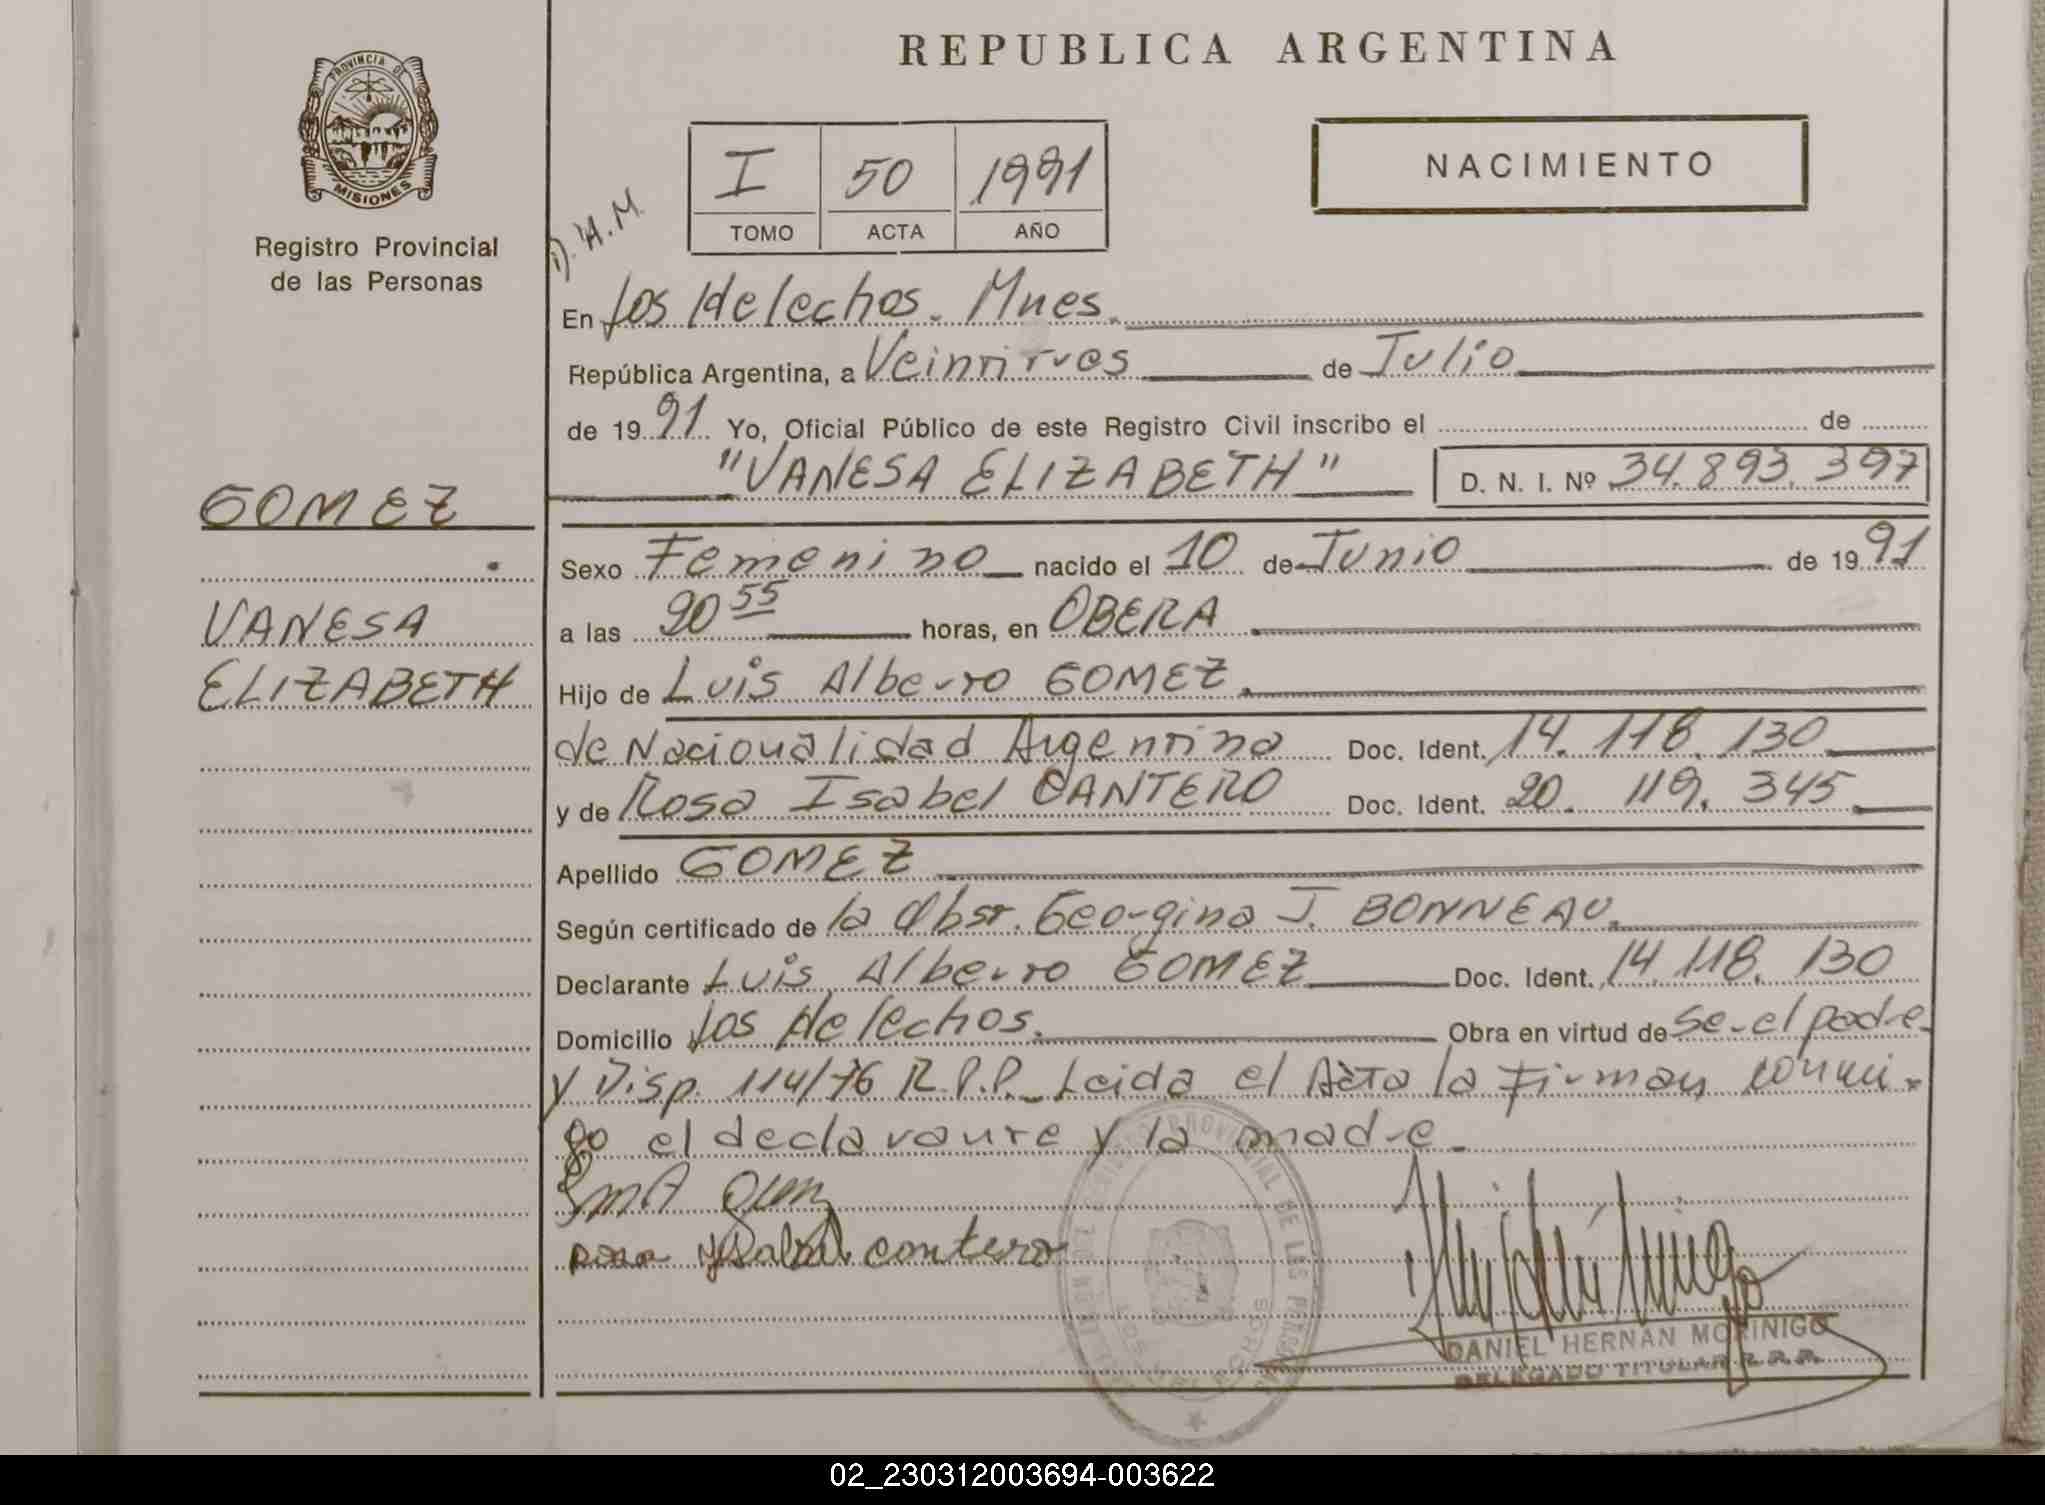 REPUBLICA ARGENTINA
PROVINCIA DE
MISIONES
Registro Provincial
de las Personas
I 50 1991
TOMO ACTA AÑO
NACIMIENTO
D.H.M.
En Los Helechos. Mnes.
República Argentina, a Veintitres de Julio
de 1991 Yo, Oficial Público de este Registro Civil inscribo el de
"VANESA ELIZABETH" D. N. I. Nº 34.893.397
GOMEZ
VANESA
ELIZABETH
Sexo Femenino nacido el 10 de Junio de 1991
a las 20 55 horas, en OBERA
Hijo de Luis Alberto GOMEZ.
de Nacionalidad Argentina Doc. Ident. 14.118.130
y de Rosa Isabel CANTERO Doc. Ident. 20.119.345
Apellido GOMEZ
Según certificado de la Obst. Georgina J. BONNEAU.
Declarante Luis Alberto GOMEZ Doc. Ident. 14.118.130
Domicilio Los Helechos. Obra en virtud de ser el padre
y Disp. 114/76 R.P.P. Leida el Acta la firman conmi-
go el declarante y la madre.
Ysabel cantero
DANIEL HERNAN MORINIGO
DELEGADO TITULAR R.P.P.
02_230312003694-003622